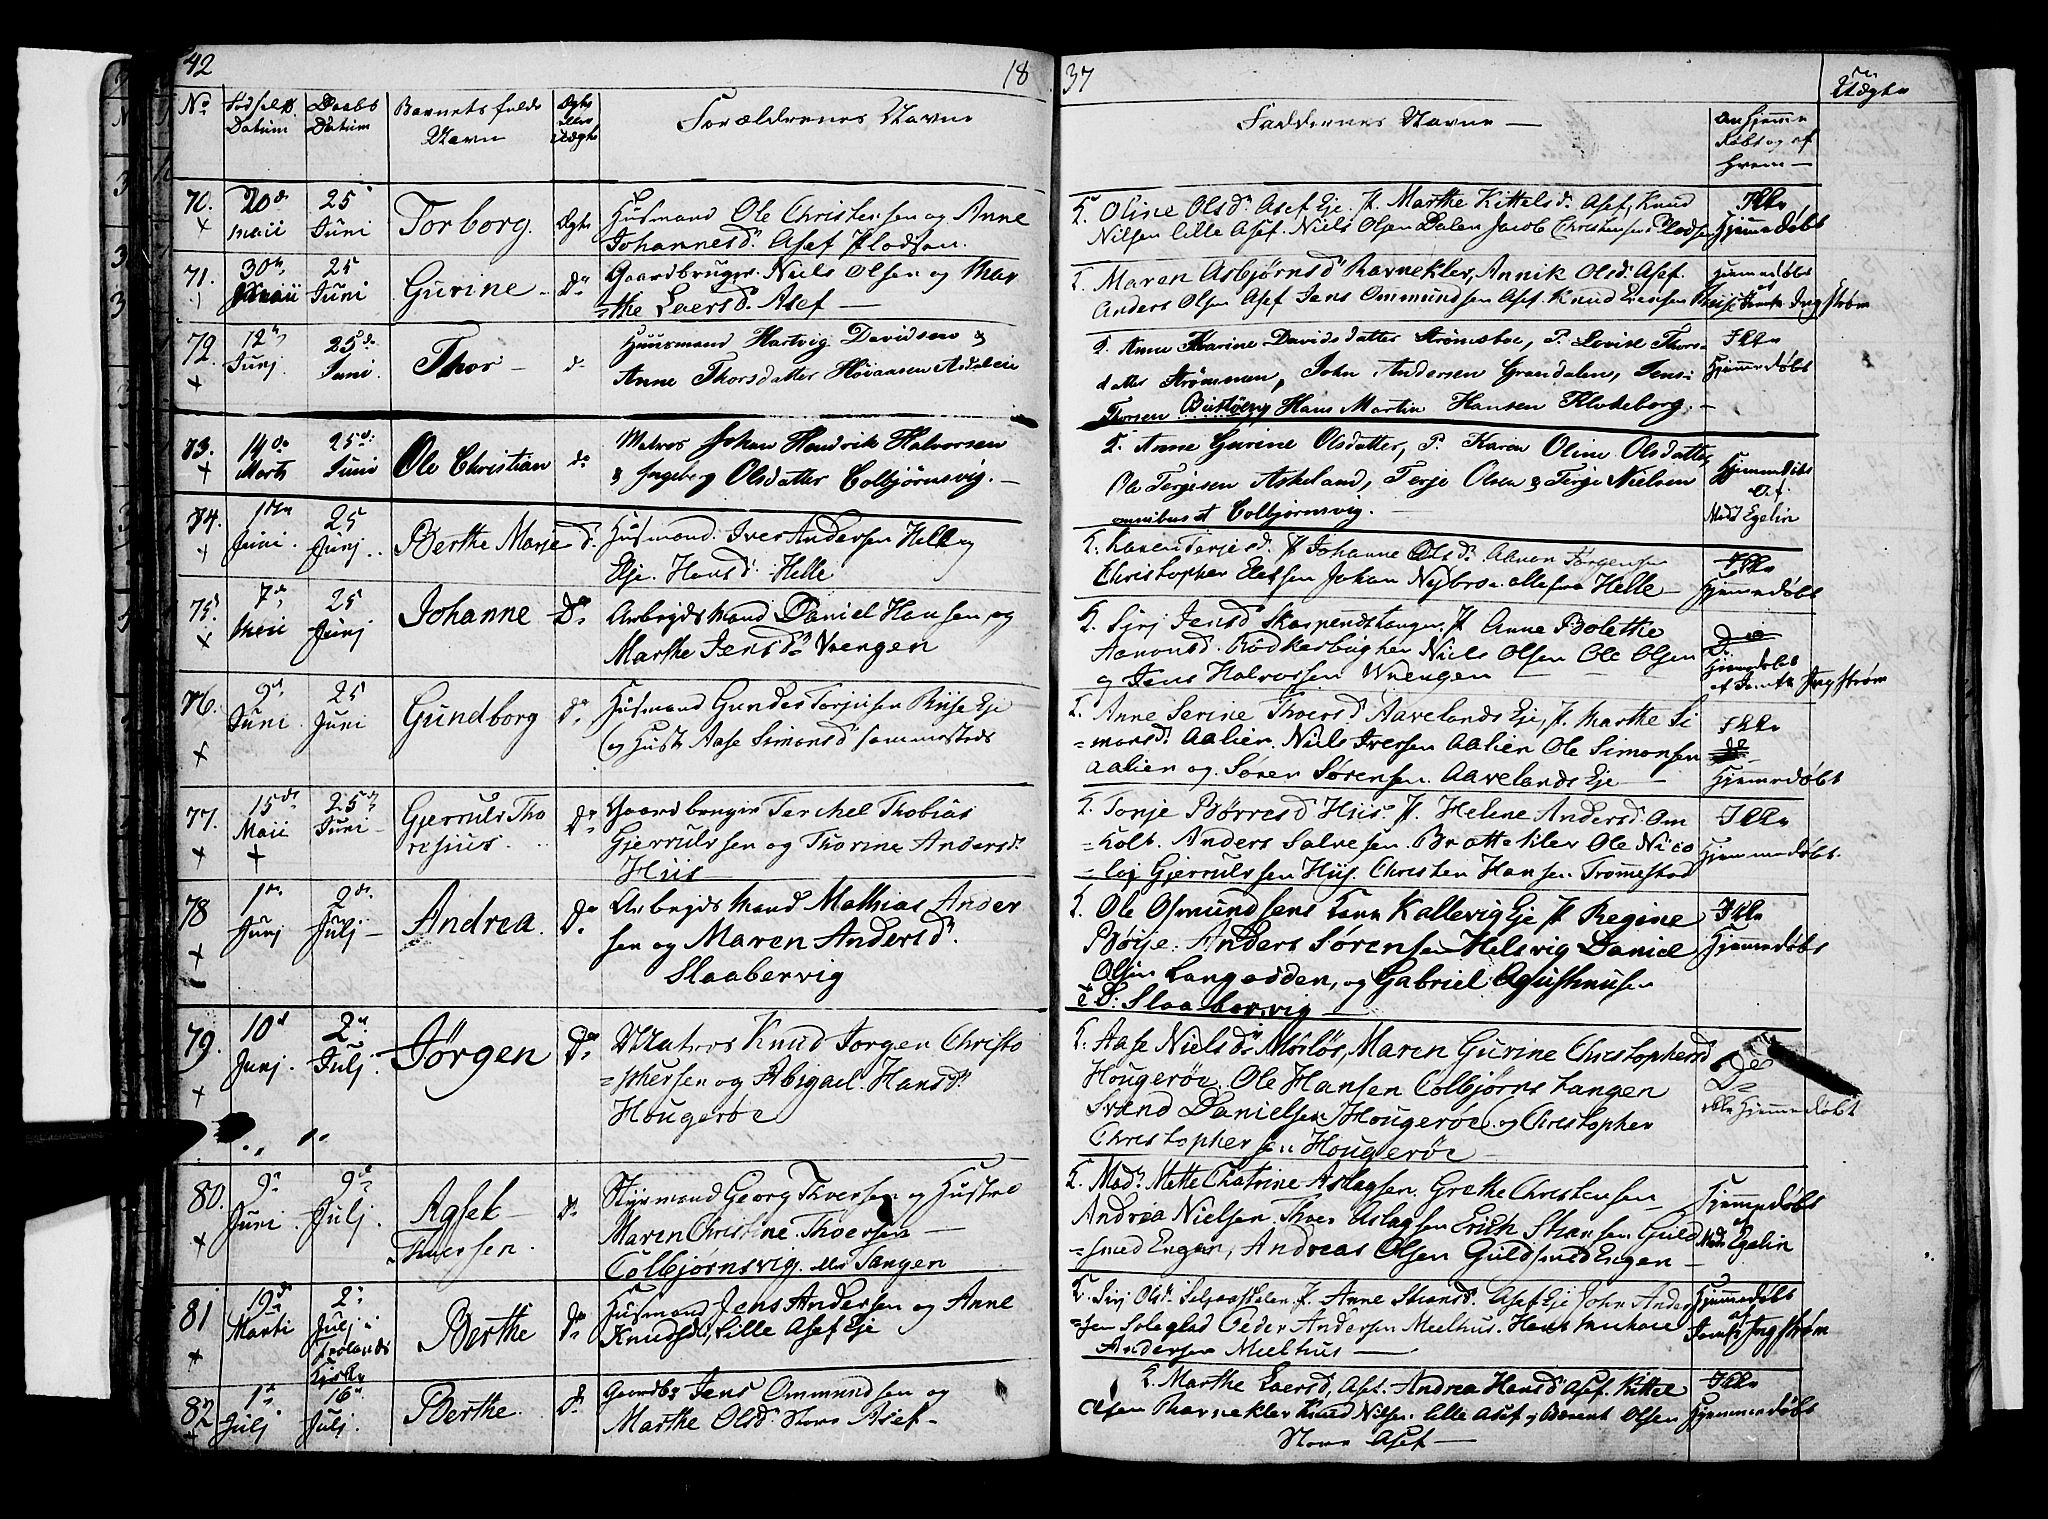 42
18
37
No
Fødsels Datum
Daabs Datum
Barnets fulde Navn
Forældrenes Navne
Faddernes Navne
om Hjemme
døbt og af
hvem
70.
20de Maii
25 Juni
Torborg.
Ægte
Husmand Ole Christensen og Anne
Johannesd. Asef
F. Oline Olsd. Asef Eje. P. Marthe Kittelsd. Asef, Knud
Nilsen Lille Asef. Niels Olsen Dalen Jacob Christensen
Ikke
Hjemmedøbt
71.
30te Maii
25 Juni
Gurine
Do
Gaardbruger Niels Olsen og Mar
=the Laersd. Asef
F. Maren Asbjørnsd Ravnekler, Annik Olsd. Asef.
Anders Olsen Asef Jens Ommundsen Asef. Knud Evensen
Hjemmedøbt
af
Ingstrøm
72.
12te Junj
25de Juni
Thor
do
Huusmand Hartvig Davidsen &
Anne Thorsdatter
F. Anne Karine Davidsdatter Strømsboe, P. Lovise Thors-
datter Strømmen, John Andersen Grændalen, Jens
Thorsen Hans Martin Hansen Klokeborg.
Ikke
Hjemmedøbt
73.
14de Marts
25de Juni
Ole Christian
do
Matros Johan Hendrik Halvorsen
& Ingeborg Olsdatter Colbjørnsvig.
F. Anne Gurine Olsdatter, P. Karen Oline Olsdatter,
Ole Terjesen Askeland, Terje Olsen & Terje Nielsen
omnibus et Colbjørnsvig.
Hjemmedøbt
af
Mad Egelin
74.
1ste Juni.
25 Junj
Berthe Marje
d.
Husmand Iver Andersen Helle og
Elje. Hansd. Helle
F. Karen Terjesd. P Johanne Olsd. Aanon Jørgensen
Christopher Elefsen Johan Nybroe alle fra Helle
Ikke
Hjemmedøbt
75.
7de Maii
25 Junj
Johanne
Do
Arbejdsmand Daniel Hansen og
Marthe Jensd. Vrengen
F. Sirj Jensd Skarpenestangen. P Anne Bolethe
Aanonsd. Niels Olsen Ole Olsen
og Jens Halvorsen Wrengen
Do
Hjemedøbt
af Ingstrøm
76.
9de Juni
25 Juni
Gundborg
do
Husmand Gunder Torjusen Riise Eje
og Hustr Aase Simonsd sammesteds
F. Anne Serine Thorsd. Aavelands Eje, P. Marthe Si
=monsd. Aalien. Niels Iversen Aalien Ole Simonsen
Aalien og Søren Sørensen. Aavelands Eje
Ikke
Hjemmedøbt
77.
15de Maii
25de Juni
Gjerruls Tho
risius.
Do
Gaardbruger Terchel Thobias
Gjerrulssen og Thorine Andersd.
Hiis
F. Tonje Børresd Hiis. P. Helene Andersd. Om
=holt. Anders Salvesen. Brattekler Ole Nico
=laj Gjerrulssen Hiis Christen Hansen Tromestad
Ikke
Hjemmedøbt.
78
1ste Junj
2den Julj
Andrea.
Do
Arbejdsmand Mathias Ander
sen og Maren Andersd.
Slaabervig
F. Ole Osmundsens Kone Kallevig Eje P. Regine
Bøije. Anders Sørensen Helsvig Daniel
Olsen Langodden, og Gabriel Agustinusen
Slaabervig
Ikke
Hjemmedøbt
79.
10d Junj.
2n Julj.
Jørgen
Do
Matros Knud Jørgen Christo
=phersen og Abigael. Hansd.
Hougerøe
F. Aase Nielsd. Mørløs, Maren Gurine Christophersd
Hougerøe. Ole Hansen Colbjørns Tangen
Svend Danielsen Hougerøe og Christopher
Christophersen Hougerøe
Do
ikke Hjemmedøbt
80.
9n Juni
9de Julj.
Agsel
Thversen.
Do
Styrmand Georg Thversen og Hustrue
Maren Christine Thversen
Colbjørnsvig. eller Tangen
F. Mad. Mette Chatrine Aslagsen. Grethe Christensen
Andrea Nielsen. Thver Aslagsen Erich Stransen Guld
=smed Engen, Andreas Olsen Guldsmed Engen
Hjemmedøbt
af
Mad. Egelin
81
19de Marti
2n Julj i
Froelands
Kirke
Berthe
Do
Husmand Jens Andersen og Anne
Knudsd. Lille Asef Eje
F. Sirj Olsd. P. Anne Stransd. Asef Eje John Ander
=sen Soleglad Peder Andersen Mielhus.
Andersen Mielhus
Hjemmedøbt
af
Ingstrøm
82
1n Julj
16n Julj.
Berthe.
Do
Gaardbr Jens Ommundsen og
Marthe Olsd. Store Asef
F. Marthe Laersd. Asef. Andrea Hansd Asef. Kittel
Olsen Ravnekler Knud Nilsen. Lille Asef og Berent Olsen
Store Asef
Ikke
Hjemmedøbt